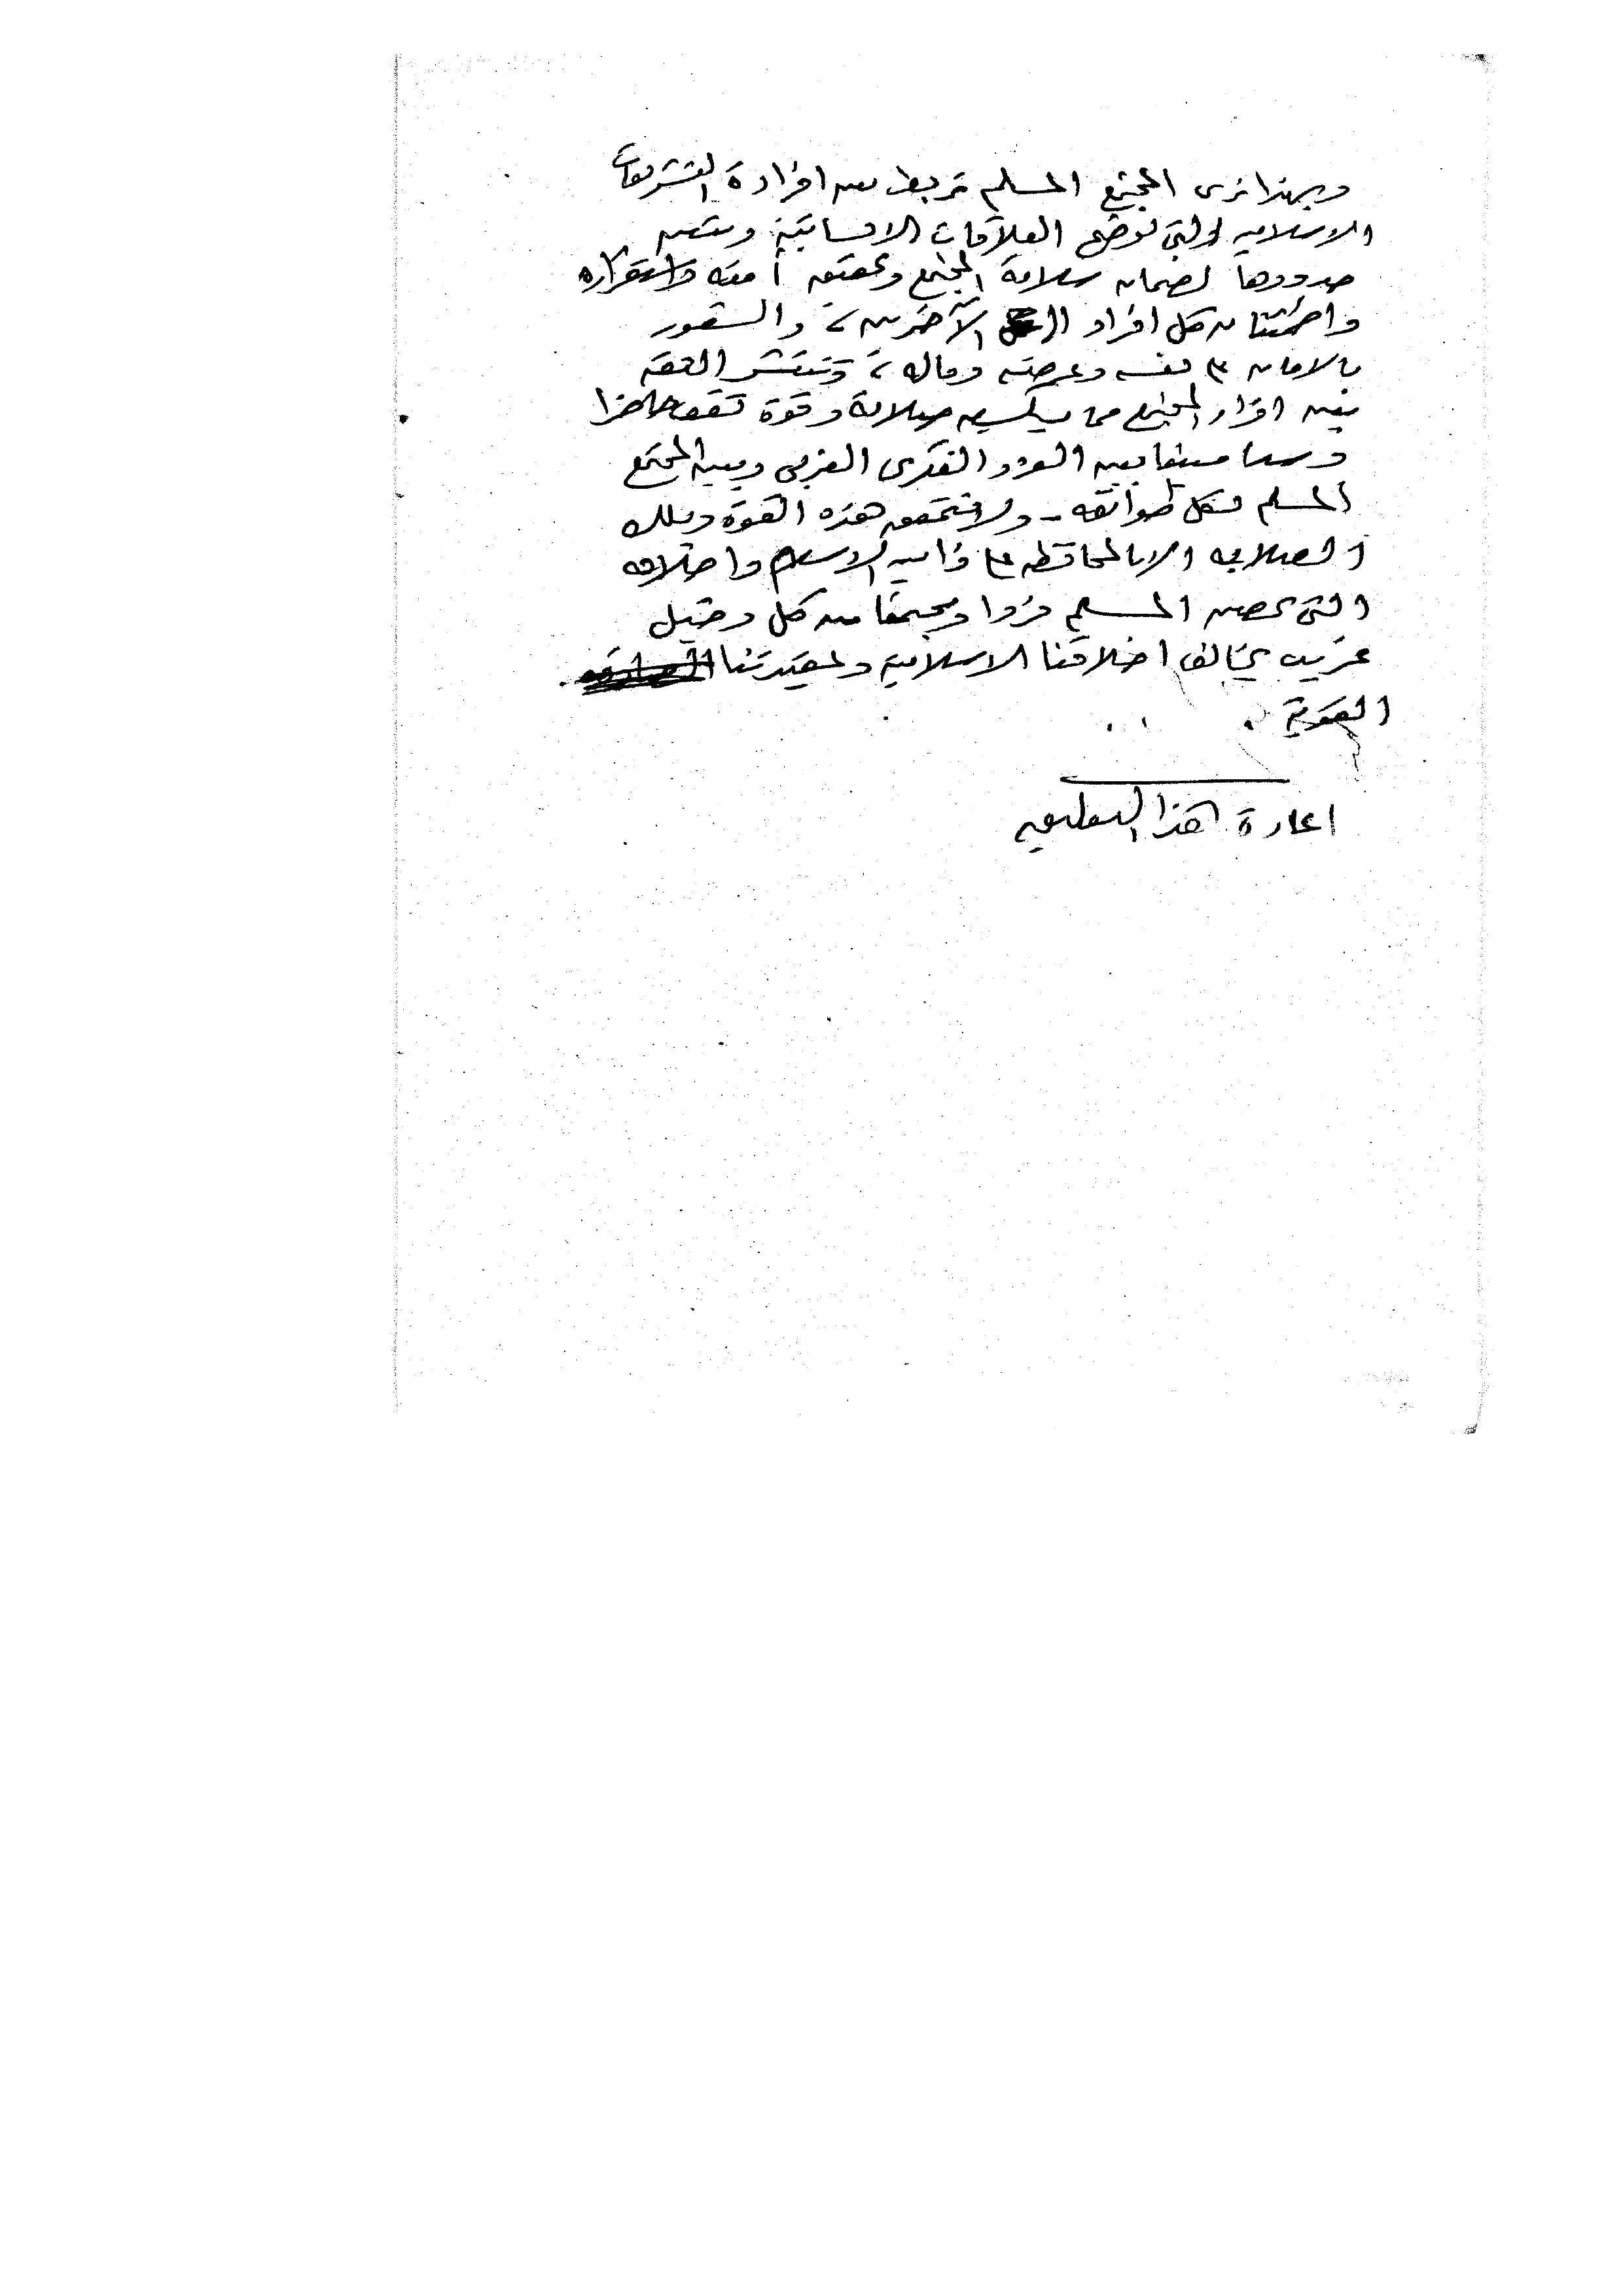 وبهذا نرى المجتمع المسلم تربط بين افراده التشريعات
الاسلاميه والتى توضح العلاقات الانسانية وتبين
حدودها لضمان سلامة المجتمع وتحقيق أمنه واستقراره
واطمئنان كل افراد الآخرين، والشعور
بالامان على نفسه وعرضه وماله، وتنتشر الثقه
بين افراد المجتمع مما يكسبه صلابة وقوة تقف حاجزا
وسدا منيعا بين الغزو الفكرى الغربى وبين المجتمع
المسلم بكل طوائفه - ولا تتحقق هذه القوة وتلك
الصلابه الا بالمحافظه على ذاتيه الاسلام واخلاقه
التى تحصن المسلم فردا ومجتمعا من كل دخيل
غريب يخالف اخلاقنا الاسلامية وعقيدتنا
القوية .
اعادة هذا التعليق